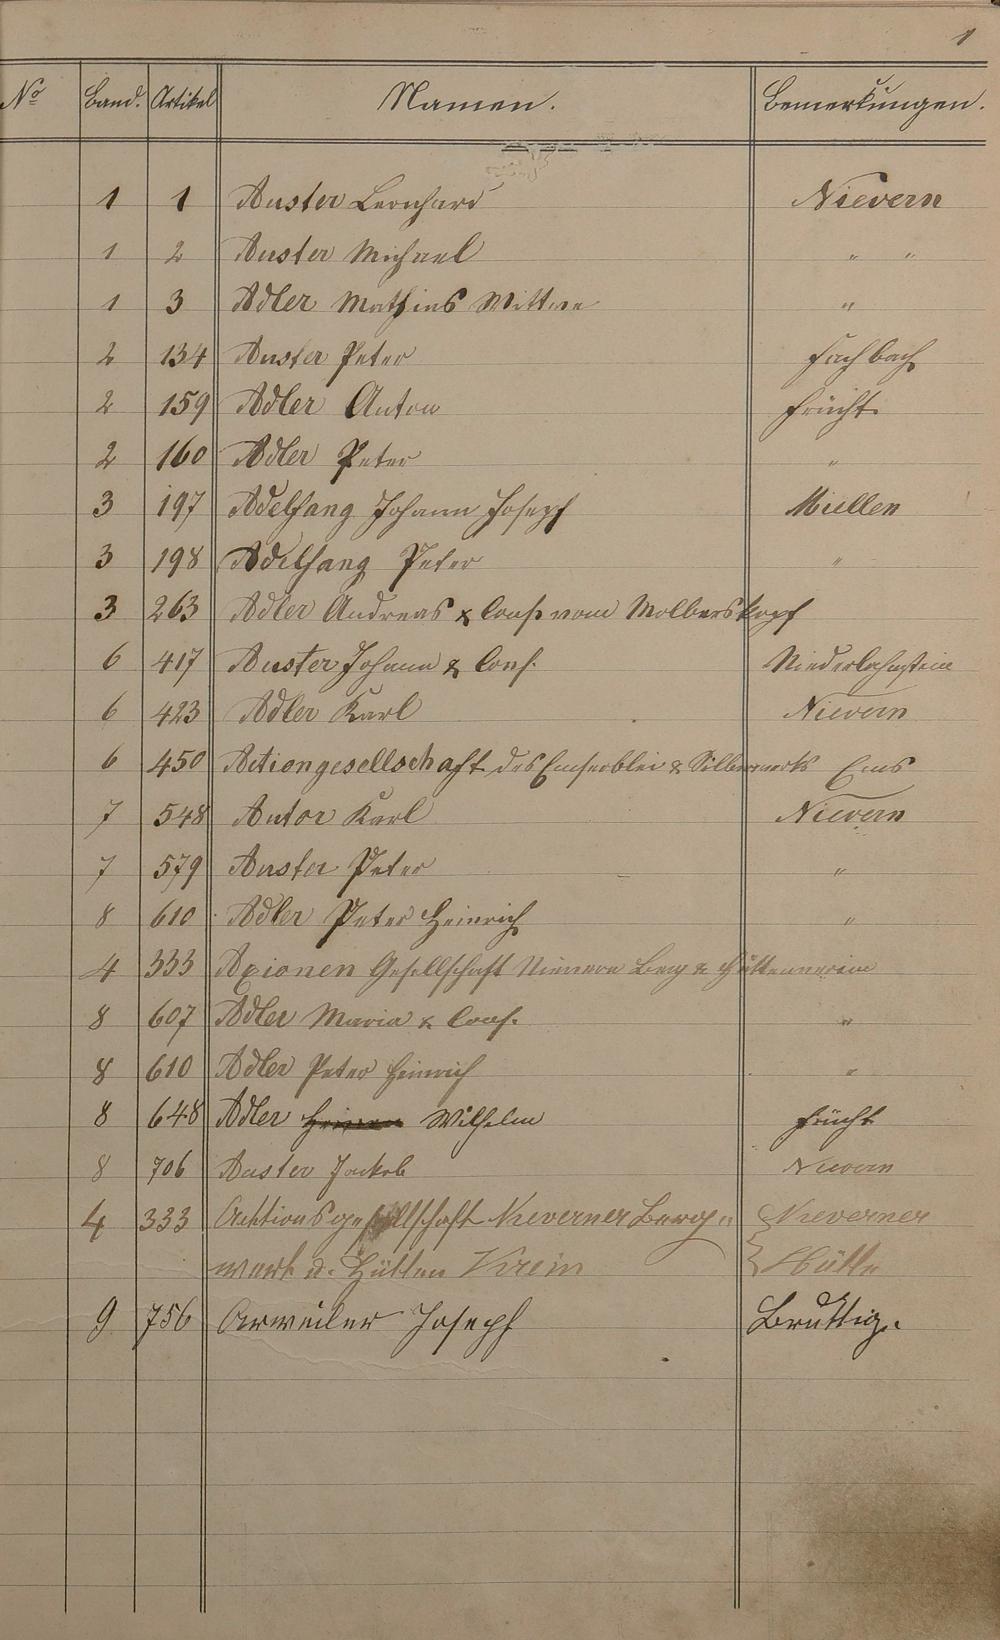 1
No Band. Artikel Namen. Bemerkungen.
1 1 Auster Leonhard Nievern
1 2 Auster Michael " "
1 3 Adler Mathias Wittwe "
2 134 Auster Peter Fachbach
2 159 Adler Anton Frücht
2 160 Adler Peter "
3 197 Adelfang Johann Joseph Miellen
3 198 Adelfang Peter "
3 263 Adler Andreas & Cons. vom Molberskopf
6 417 Auster Johann & Cons. Niederlahnstein
6 423 Adler Karl Nievern
6 450 Actiengesellschaft des Emserblei & Silberwerks Ems
7 548 Autor Karl Nievern
7 579 Auster Peter "
8 610 Adler Peter Heinrich "
4 333 Axionen Gesellschaft Nievern Berg & Hüttenverein
8 607 Adler Maria & Cons. "
8 610 Adler Peter Heinrich "
8 648 Adler Wilhelm Frücht
8 706 Auster Jackob Nievern
4 333 Acktionsgesellschaft Nieverner Berg- Nieverner
werk u. Hütten Verein Hütte
9 756 Arweiler Joseph Bruttig.